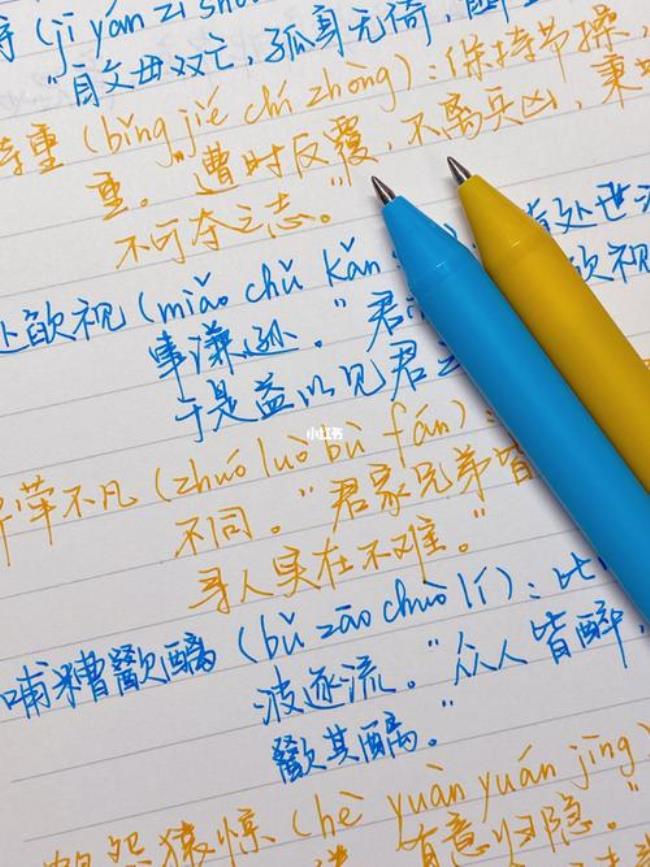 (jī yǎn zì shǒ
"自父母双亡,孤身无倚,
持重 (bǐng jié chí zhòng): 保持节操,
重。"遭时反覆,不离兵凶,秉
不可夺之志。"
处欿视 (miǎo chǔ kǎn 处世
事谦逊。"君 欿视
于是益以见君
荦不凡 (zhuó luò bù fán):
不同。"君家兄弟皆
寻人实在不难。"
小红书
哺糟歠醨 (bǔ zāo chuò lí): 比
波逐流。"众人皆醉,
歠其醨。"
怨猿惊 (hè yuàn yuán jīng)
有意归隐。"